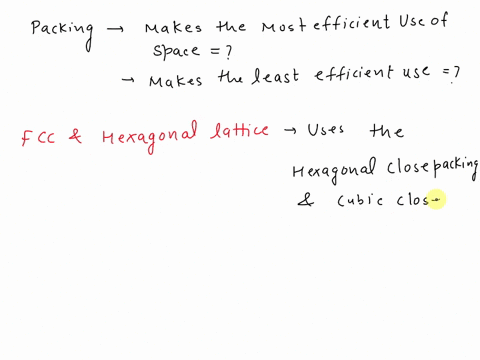 Packing → Makes the Most efficient Use of
Space = ?
→ Makes the least efficient use = ?
FCC & Hexagonal lattice → Uses the
Hexagonal closepacking
& cubic clos